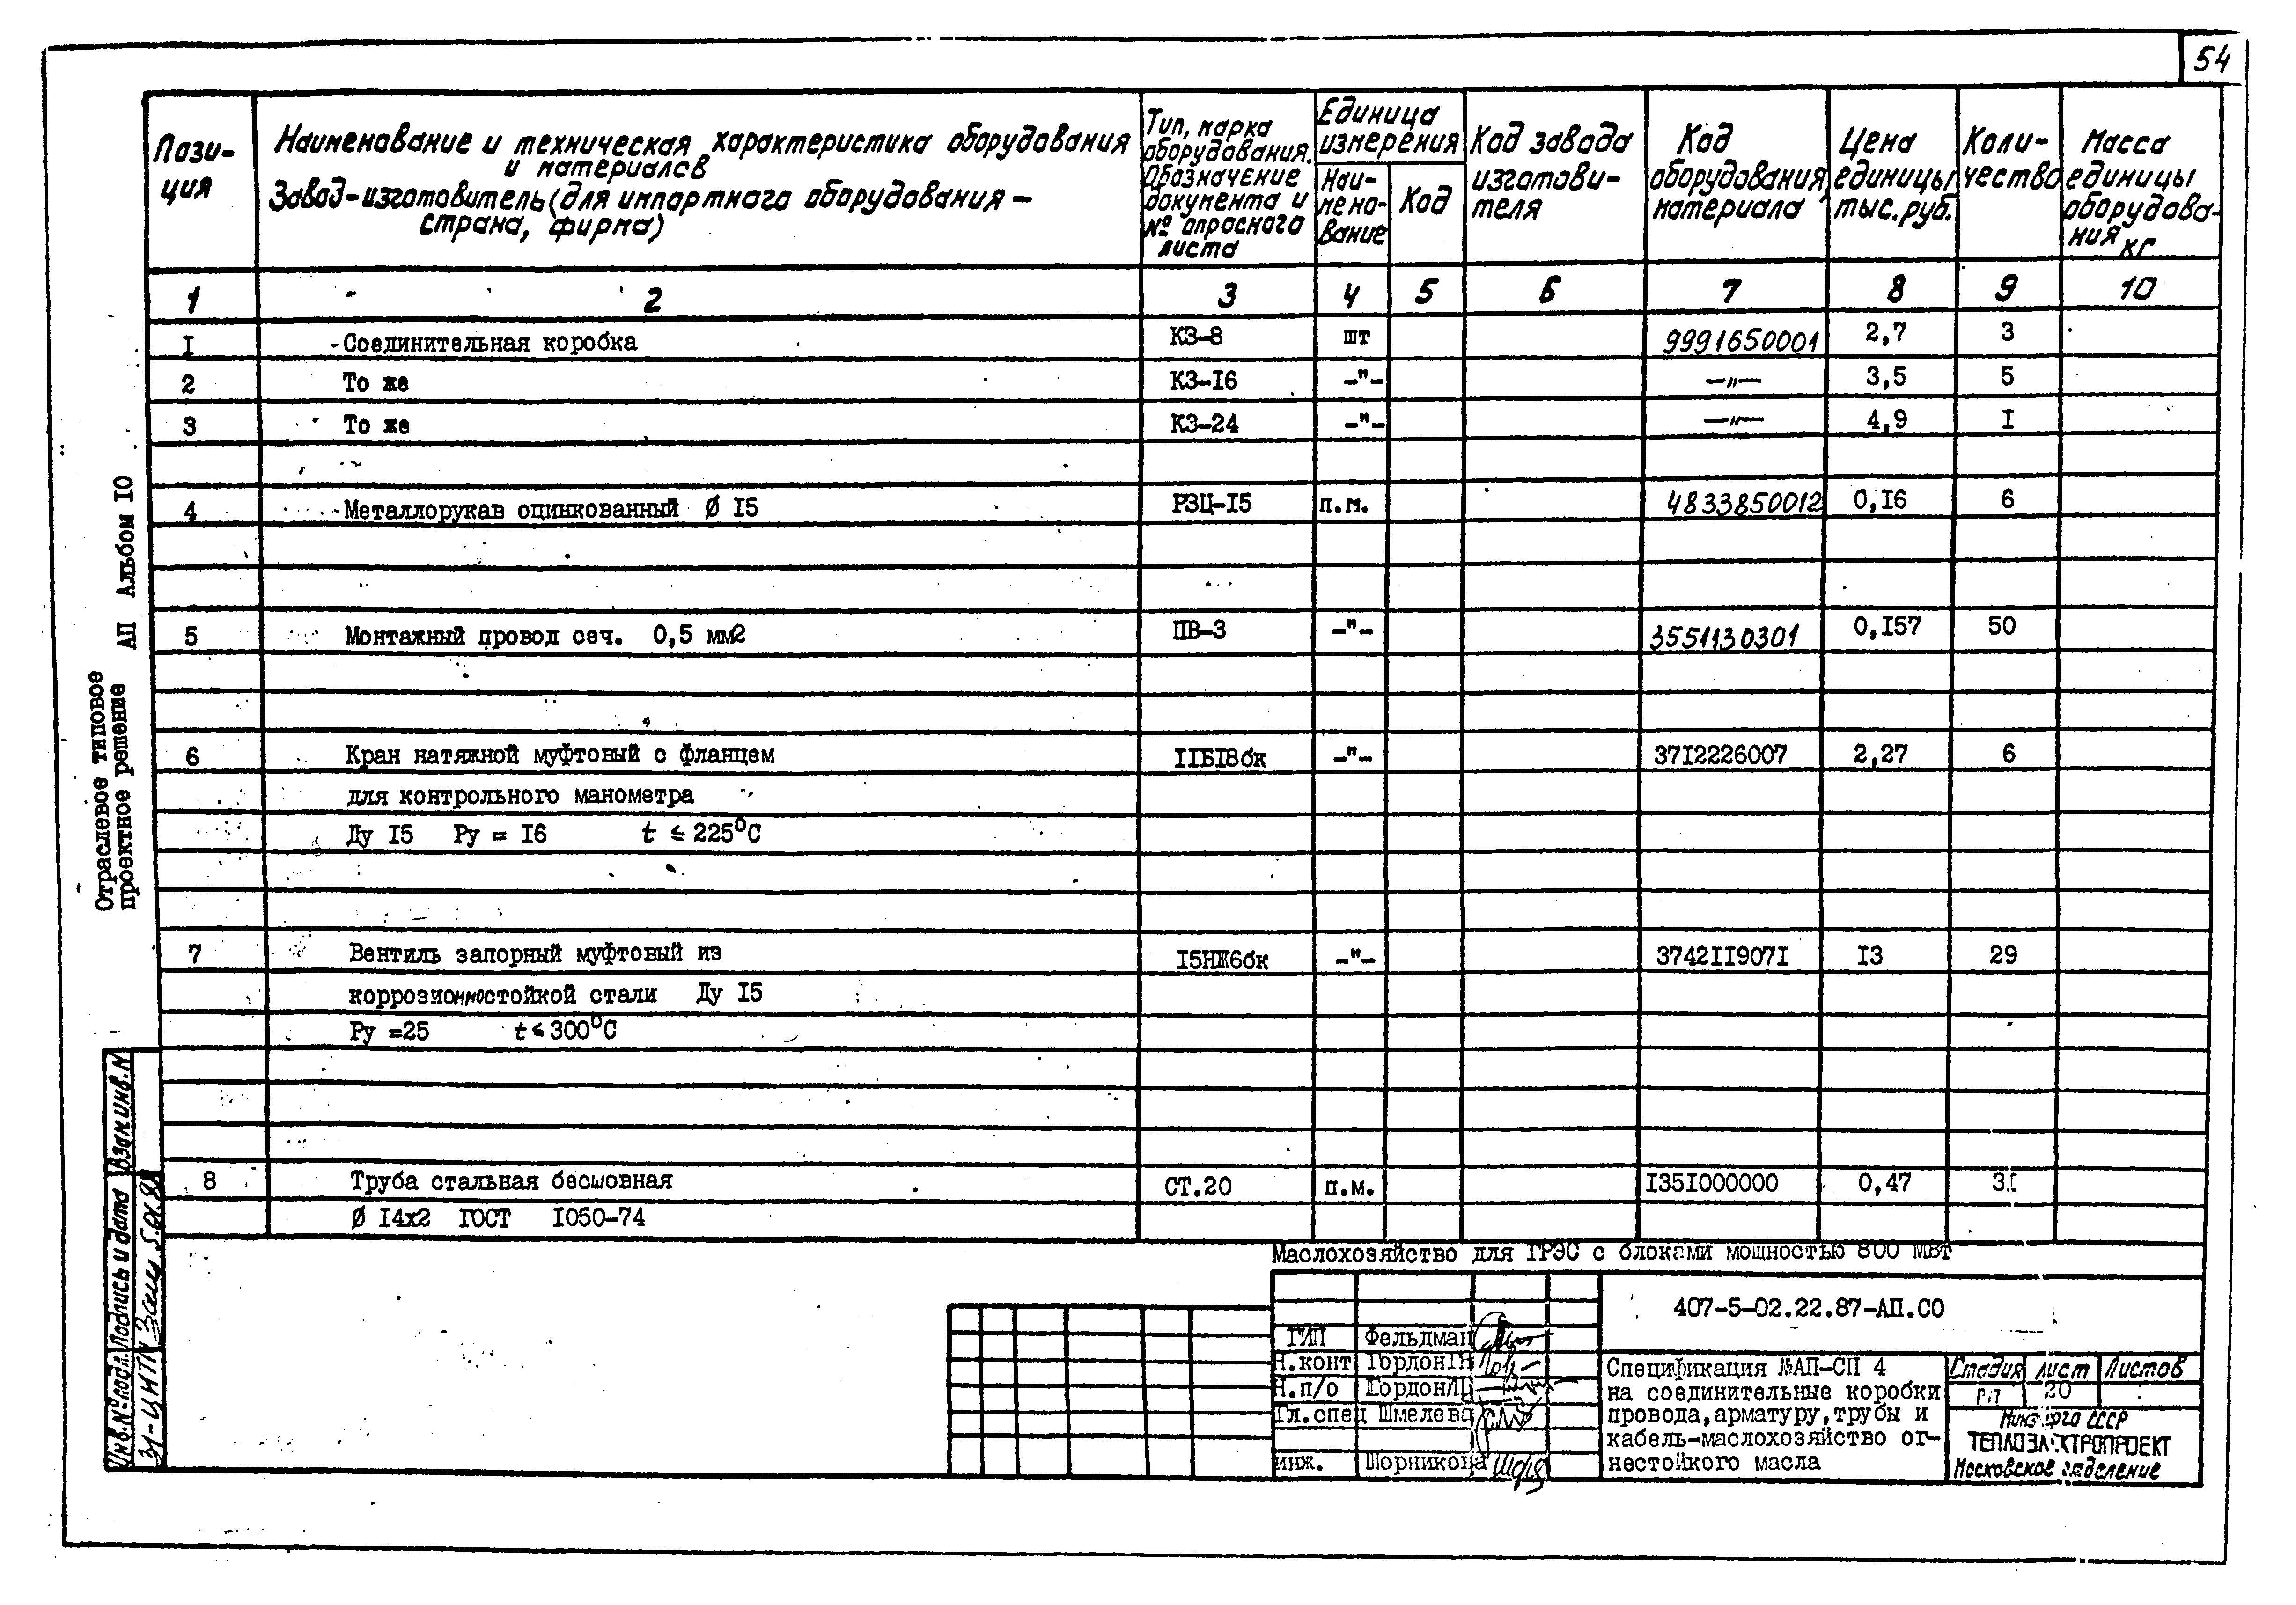 54
Пози-
ция
Наименование и техническая характеристика оборудования
и материалов
Завод-изготовитель (для импортного оборудования –
страна, фирма)
Тип, марка
оборудования.
Обозначение
документа и
№ опросного
листа
Единица
измерения
Наи-
мено-
вание
Код
Код завода
изготови-
теля
Код
оборудования,
материала
Цена
единицы
тыс.руб.
Коли-
чество
Масса
единицы
оборудова-
ния кг
1 2 3 4 5 6 7 8 9 10
I Соединительная коробка КЗ-8 шт 9991650001 2,7 3
2 То же КЗ-I6 –"– –"– 3,5 5
3 То же КЗ-24 –"– –"– 4,9 I
4 Металлорукав оцинкованный Ø I5 РЗЦ-I5 п.м. 4833850012 0,I6 6
5 Монтажный провод сеч. 0,5 мм2 ПВ-3 –"– 3551130301 0,I57 50
6 Кран натяжной муфтовый с фланцем IIБI8бк –"– 37I2226007 2,27 6
для контрольного манометра
Ду I5 Ру = I6 t ≤ 225°С
7 Вентиль запорный муфтовый из I5НЖ6бк –"– 3742II907I I3 29
коррозионностойкой стали Ду I5
Ру =25 t ≤ 300°С
8 Труба стальная бесшовная СТ.20 п.м. I35I000000 0,47 3I
Ø I4х2 ГОСТ I050-74
Отраслевое типовое
проектное решение АП Альбом IO
Взам инв. N
Подпись и дата
Инв.№ подл.
Маслохозяйство для ГРЭС с блоками мощностью 800 МВт
407-5-02.22.87-АП.СО
ГИП Фельдман
Н.контр Гордон
Н.п/о Гордон
Гл.спец Шмелева
инж. Шорникова
Спецификация №АП-СП 4
на соединительные коробки
провода, арматуру, трубы и
кабель-маслохозяйство ог-
нестойкого масла
Стадия лист Листов
РП 20
Минэнерго СССР
ТЕПЛОЭЛЕКТРОПРОЕКТ
Московское отделение